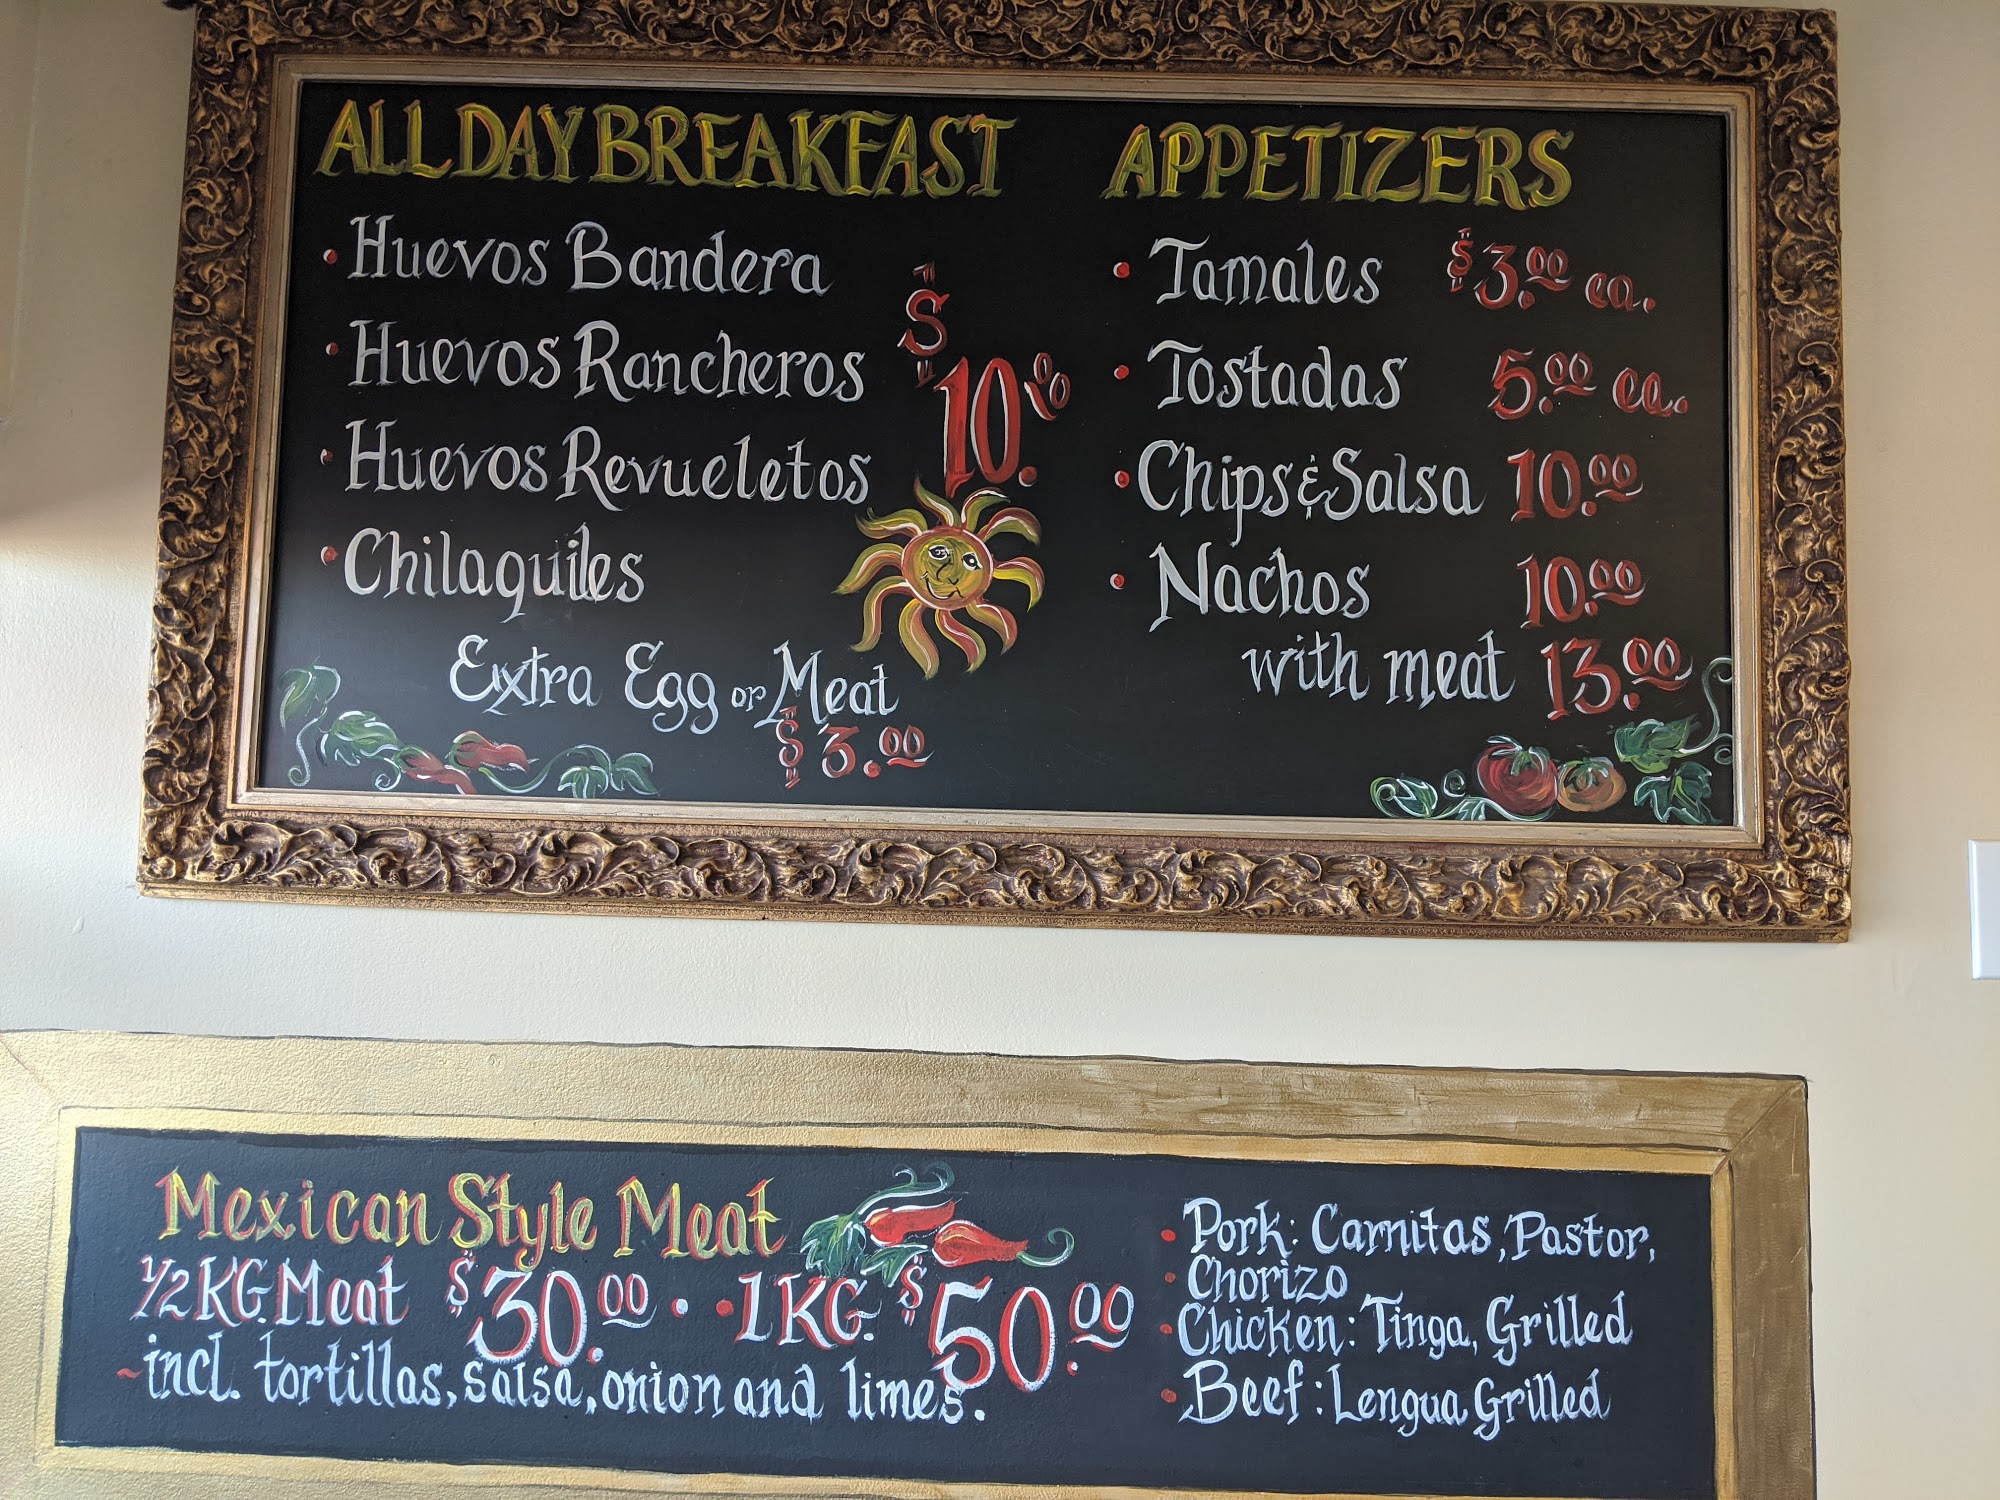 ALL DAY BREAKFAST
• Huevos Bandera
• Huevos Rancheros
$10.00
• Huevos Revueletos
• Chilaquiles
Extra Egg or Meat
$3.00
APPETIZERS
• Tamales $3.00 ea.
• Tostadas 5.00 ea.
• Chips & Salsa 10.00
• Nachos 10.00
with meat 13.00
Mexican Style Meat
1/2 KG. Meat $30.00 • • 1 KG. $50.00
~ incl. tortillas, salsa, onion and limes.
• Pork: Carnitas, Pastor,
• Chorizo
• Chicken: Tinga, Grilled
• Beef: Lengua Grilled